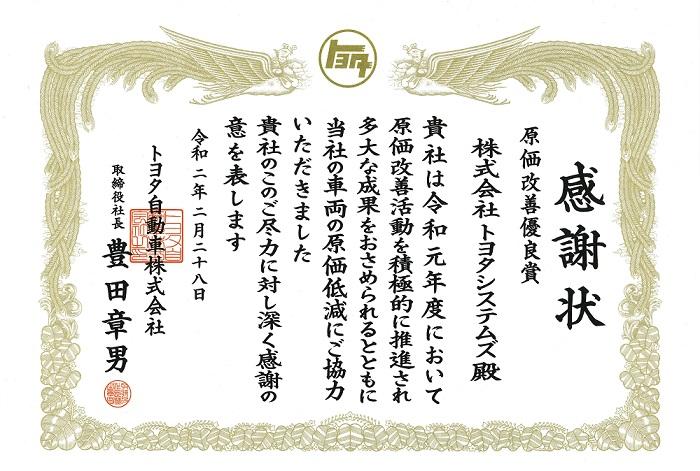 トヨタ
感謝状
原価改善優良賞
株式会社トヨタシステムズ殿
貴社は令和元年度において
原価改善活動を積極的に推進され
多大な成果をおさめられるとともに
当社の車両の原価低減にご協力
いただきました
貴社のこのご尽力に対し深く感謝の
意を表します
令和二年二月二十八日
トヨタ自動車株式会社
取締役社長 豊田章男